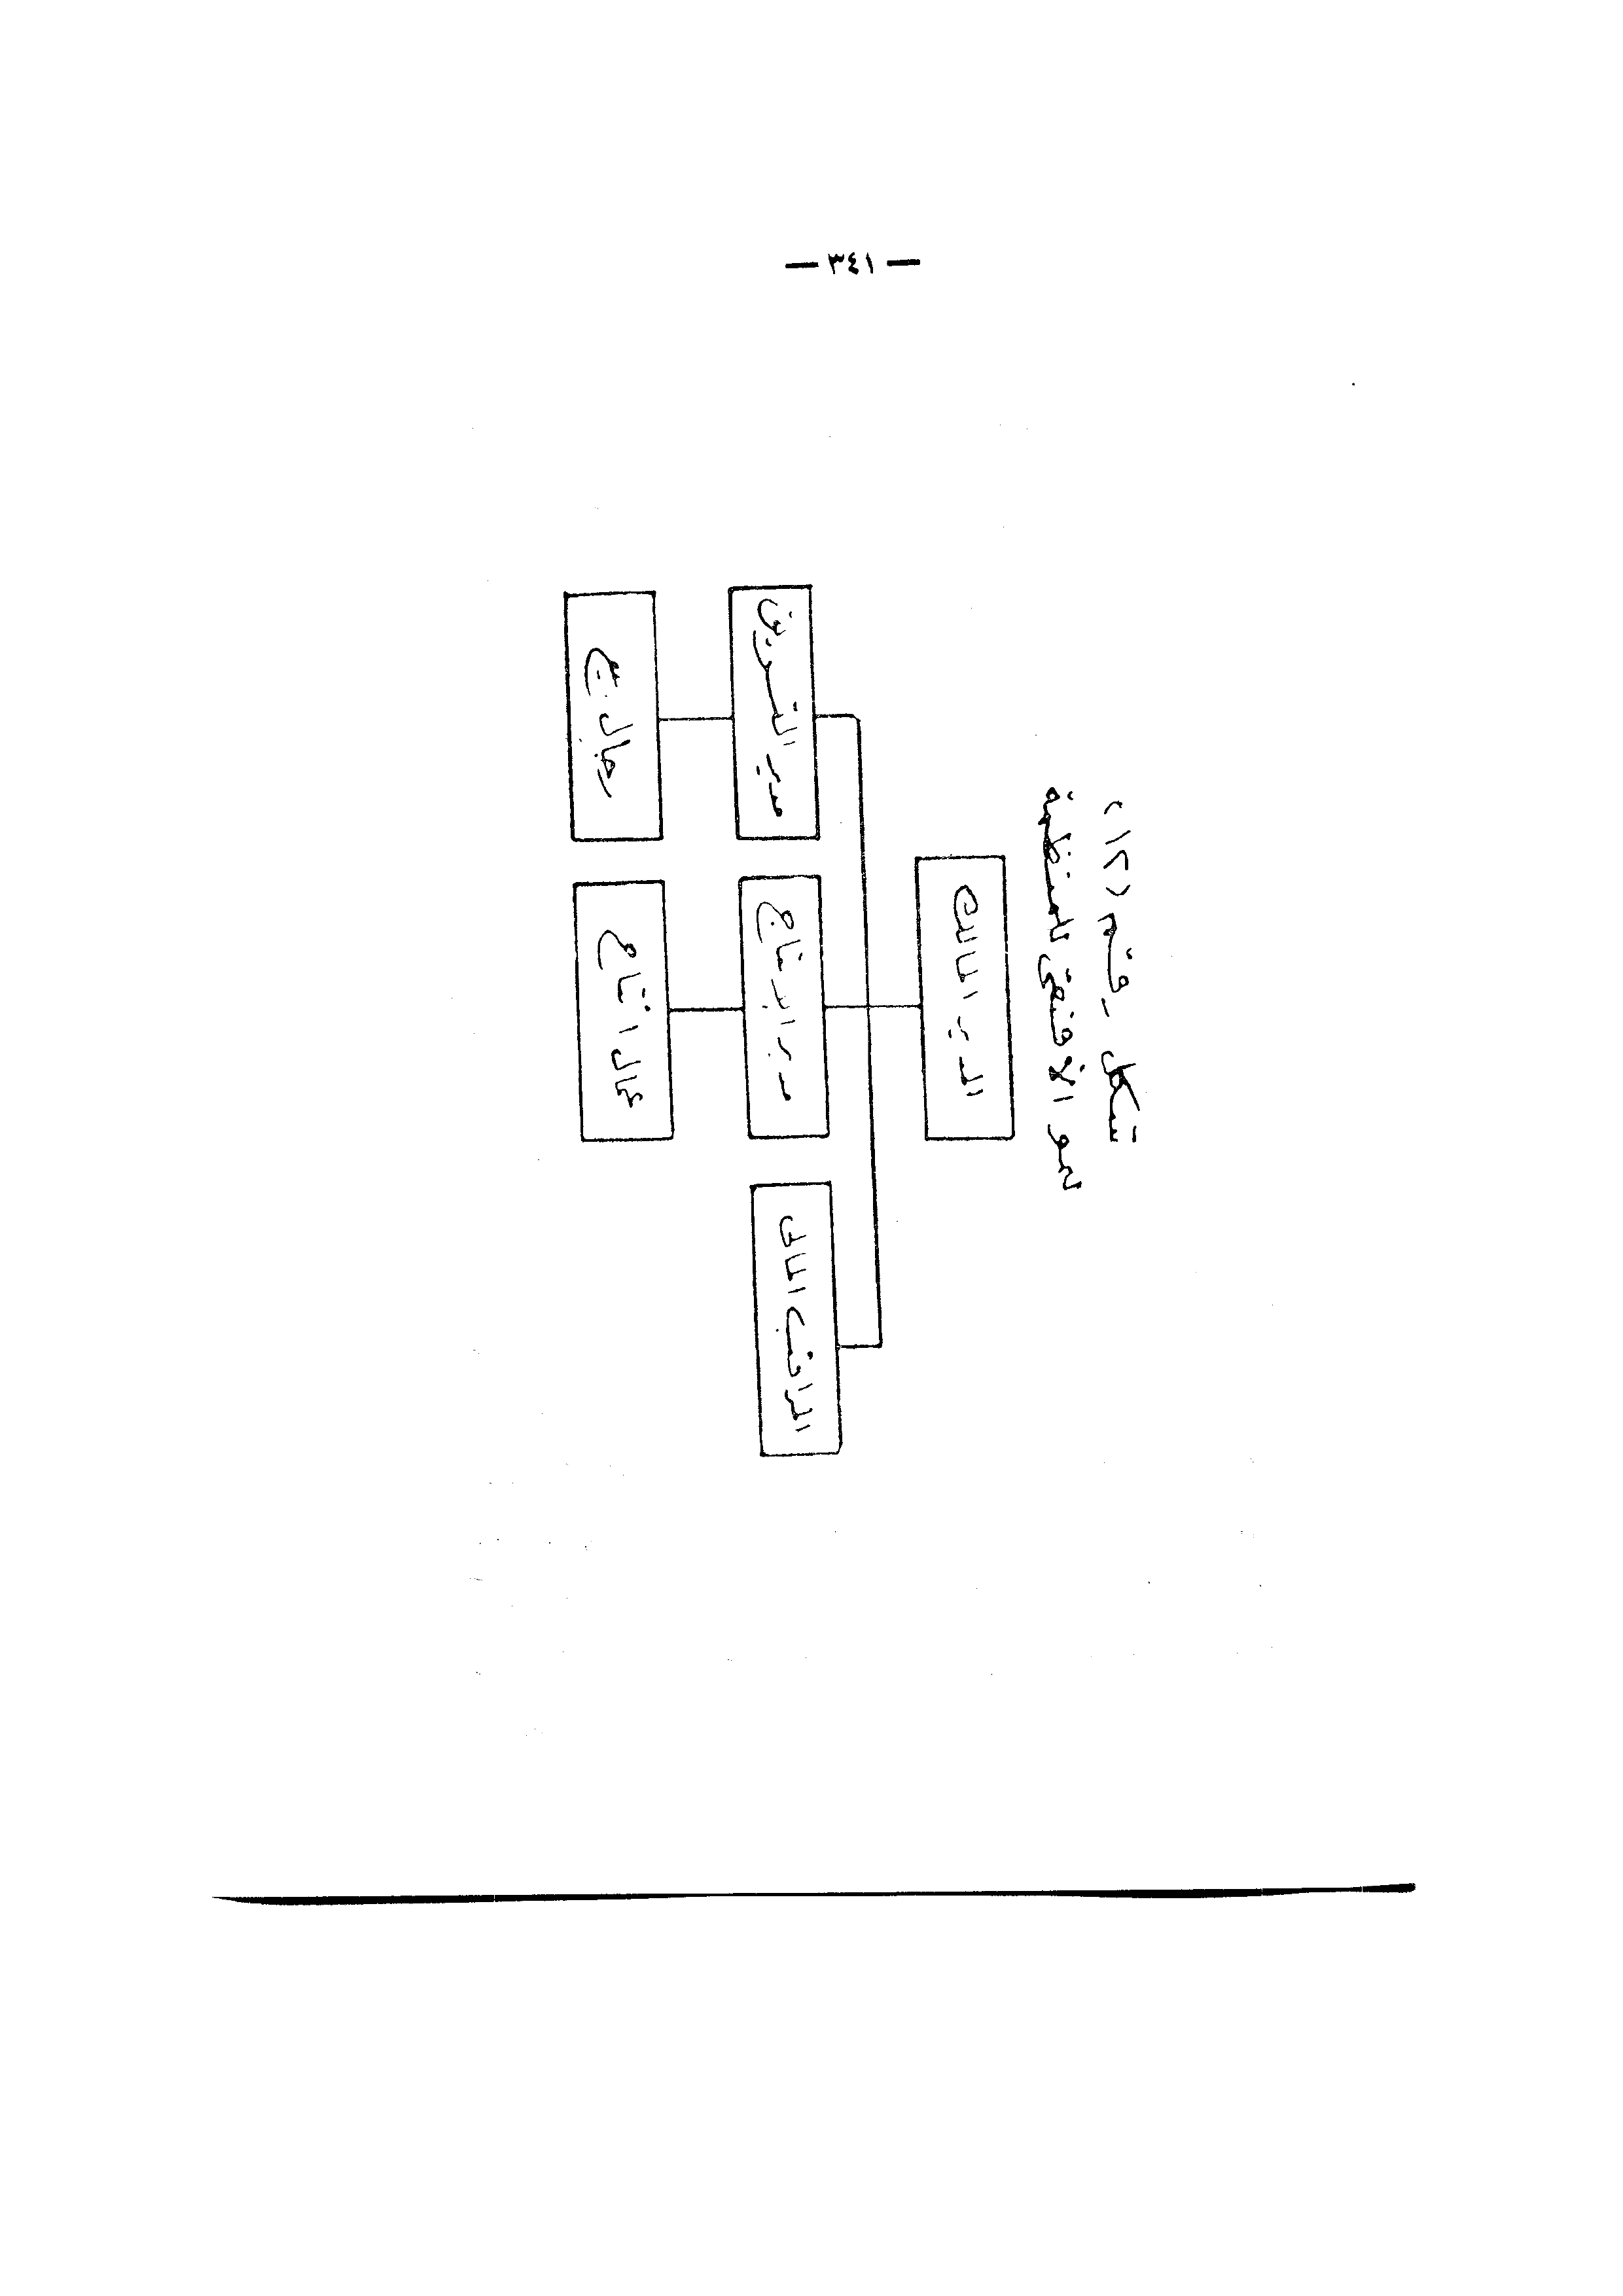 — ٣٤١ —
شكل رقم (١٢)
النمو الأفقى للمنظمة
المدير المالك
المراقب المالى
مدير الإنتاج
مدير التسويق
عمال انتاج
رجال بيع